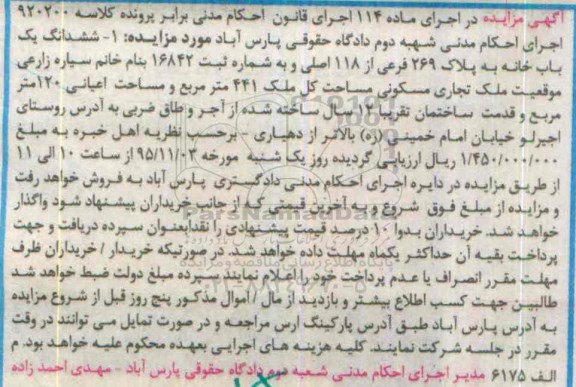 آگهی مزایده در اجرای ماده ۱۱۴ اجرای قانون احکام مدنی برابر پرونده کلاسه ۹۲۰۲۰۰
اجرای احکام مدنی شعبه دوم دادگاه حقوقی پارس آباد مورد مزایده: ۱- ششدانگ یک
باب خانه به پلاک ۲۶۹ فرعی از ۱۱۸ اصلی و به شماره ثبت ۱۶۸۴۲ بنام خانم سیاره زارعی
موقعیت ملک تجاری مسکونی مساحت کل ملک ۴۴۱ متر مربع و مساحت اعیانی ۱۲۰متر
مربع و قدمت ساختمان تقریبا سال ساخته شده از آجر و طاق ضربی به آدرس روستای
اجیرلو خیابان امام خمینی (ره) بالاتر از دهیاری - برحسب نظریه اهل خبره به مبلغ
۱/۴۵۰/۰۰۰/۰۰۰ ریال ارزیابی گردیده روز یک شنبه مورخه ۹۵/۱۱/۰۳ از ساعت ۱۰ الی ۱۱
از طریق مزایده در دایره اجرای احکام مدنی دادگستری پارس آباد به فروش خواهد رفت
و مزایده از مبلغ فوق شروع و به آخرین قیمتی که از جانب خریداران پیشنهاد شود واگذار
خواهد شد. خریداران بدوا ۱۰ درصد قیمت پیشنهادی را نقدابعنوان سپرده دریافت و جهت
پرداخت بقیه آن حداکثر یکماه مهلت داده خواهد شد. در صورتیکه خریدار / خریداران ظرف
مهلت مقرر انصراف یا عدم پرداخت خود را اعلام نمایند سپرده مبلغ دولت ضبط خواهد شد
طالبین جهت کسب اطلاع بیشتر و بازدید از مال / اموال مذکور پنج روز قبل از شروع مزایده
به آدرس پارس آباد طبق آدرس پارکینگ ارس مراجعه و در صورت تمایل می توانند در وقت
مقرر در جلسه شرکت نمایند. کلیه هزینه های اجرایی بعهده محکوم علیه خواهد بود. م
الف ۶۱۷۵ مدیر اجرای احکام مدنی شعبه دوم دادگاه حقوقی پارس آباد - مهدی احمد زاده